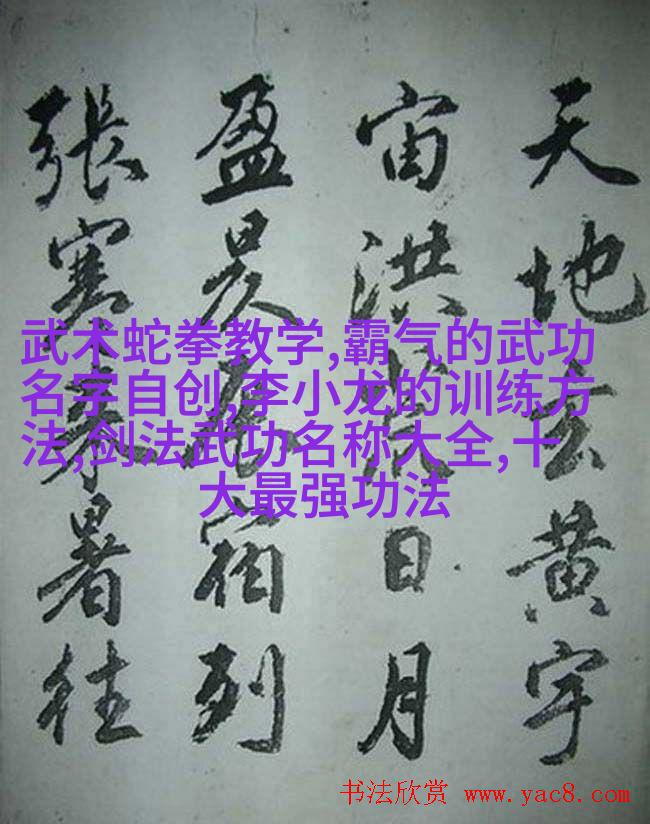 天地玄黄宇
宙洪荒日月
盈昃辰宿列
張寒来暑往
武术蛇拳教学,霸气的武功
名字自创,李小龙的训练方
法,剑法武功名称大全,十
大最强功法
书法欣赏 www.yac8.com